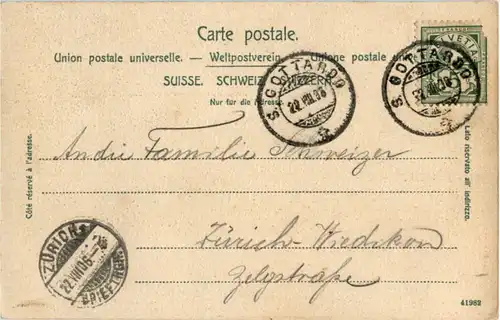 Carte postale.
Union postale universelle. — Weltpostverein. — Unione postale
SUISSE. SCHWEIZ. SVIZZERA.
Nur für die Adresse.
S. GOTTARDO
22.VIII.06
HELVETIA
S. GOTTARDO
22.VIII.06
An die Familie Schweizer
Zürich-Wiedikon
Zelgstraße
Côté réservé à l'adresse.
Lato riservato all' indirizzo.
ZÜRICH
22.VIII.06
BRIEFTRÄGER
41982